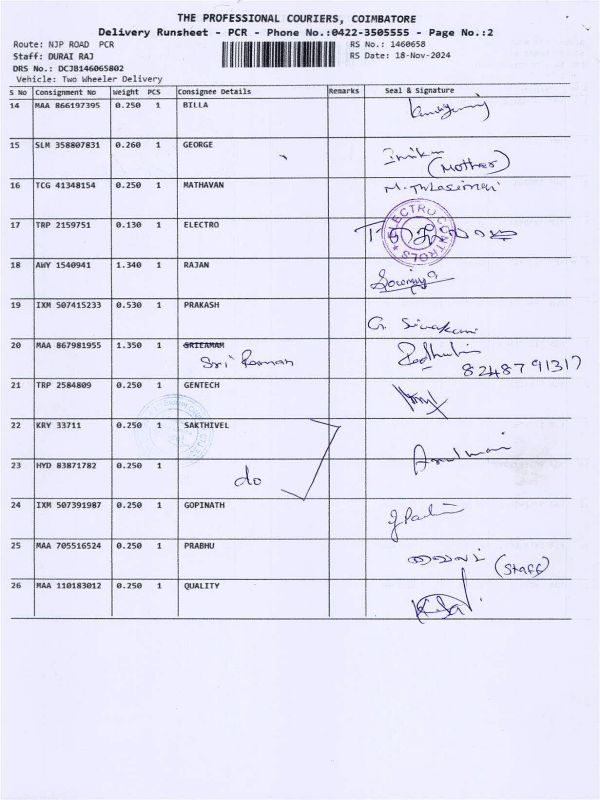 THE PROFESSIONAL COURIERS, COIMBATORE
Delivery Runsheet - PCR - Phone No.:0422-3505555 - Page No.:2
Route: NJP ROAD PCR RS No.: 1460658
Staff: DURAI RAJ RS Date: 18-Nov-2024
DRS No.: DCJB146065802
Vehicle: Two Wheeler Delivery
S No Consignment No Weight PCS Consignee Details Remarks Seal & Signature
14 MAA 866197395 0.250 1 BILLA
15 SLM 358807831 0.260 1 GEORGE
(Mother)
16 TCG 41348154 0.250 1 MATHAVAN
17 TRP 2159751 0.130 1 ELECTRO
ELECTRO CONTROLS
18 AWY 1540941 1.340 1 RAJAN
19 IXM 507415233 0.530 1 PRAKASH
G. Sivakami
20 MAA 867981955 1.350 1 SRIEAMAM
Sri Raman
8248791317
21 TRP 2584809 0.250 1 GENTECH
22 KRY 33711 0.250 1 SAKTHIVEL
23 HYD 83871782 0.250 1
do
24 IXM 507391987 0.250 1 GOPINATH
25 MAA 705516524 0.250 1 PRABHU
(Staff)
26 MAA 110183012 0.250 1 QUALITY